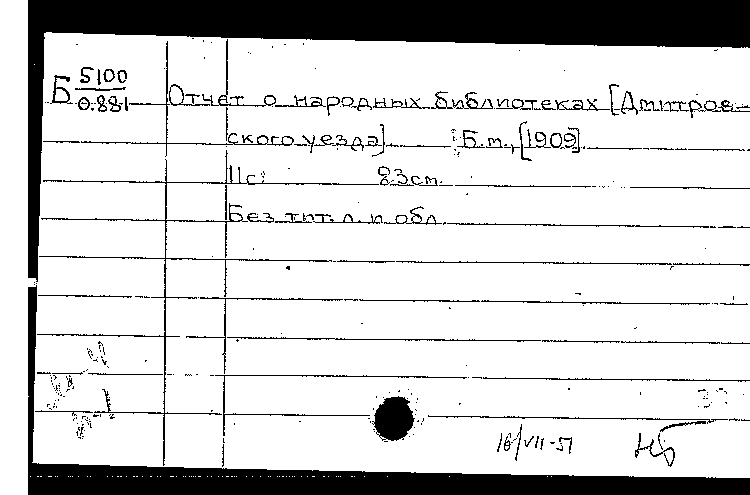 Б 5100
0.881
Отчет о народных библиотеках [Дмитров-
ского уезда]. Б.м., [1909].
11с. 23см.
Без тит. л. и обл.
16/VII-51